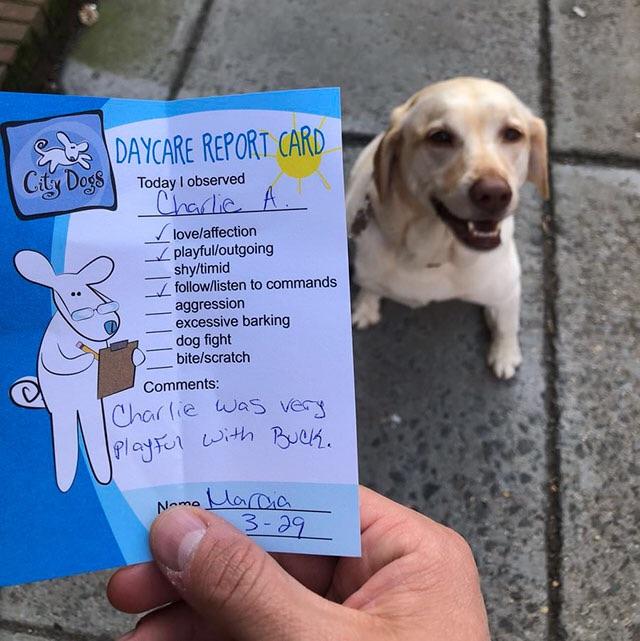 City Dogs
DAYCARE REPORT CARD
Today I observed
Charlie A.
✓ love/affection
✓ playful/outgoing
shy/timid
✓ follow/listen to commands
aggression
excessive barking
dog fight
bite/scratch
Comments:
Charlie was very
Playful with Buck.
Name Marcia
3-29